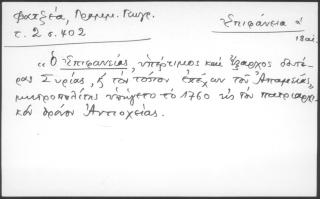 Φατζέα, Γραμμ. Γεωγρ.
τ. 2 σ. 402
Ἐπιφάνεια
18 αἰ.
«Ὁ Ἐπιφανείας, ὑπέρτιμος καὶ ἔξαρχος δευτέ-
ρας Συρίας, ὁ τὸν τόπον ἐπέχων τοῦ Ἀπαμείας,
μητροπολίτης ὑπήγετο τὸ 1760 εἰς τὸν πατριαρχι-
κὸν θρόνον Ἀντιοχείας.